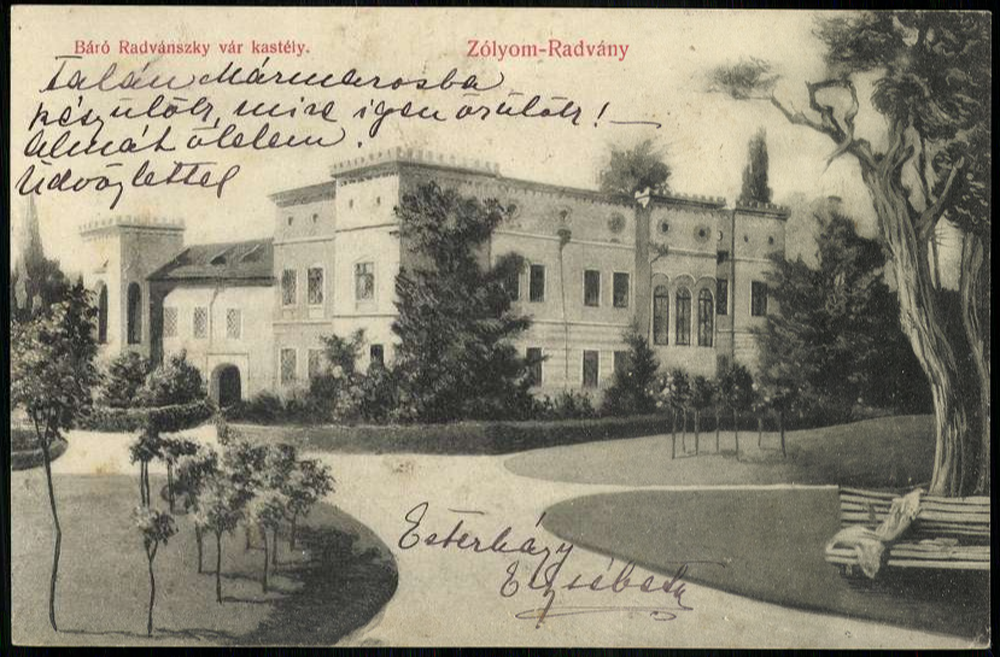 Báró Radvánszky vár kastély.
Zólyom-Radvány
Talán Mármarosba
készülök, mire igen örülök!
Almát ölelem.
Üdvözlettel
Esterházy
Erzsébeth